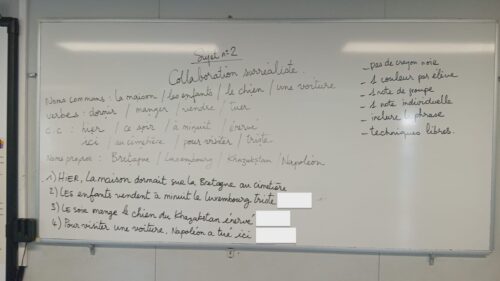 Sujet n°2
Collaboration surréaliste.
Noms communs : la maison / les enfants / le chien / une voiture
Verbes : dormir / manger / vendre / tuer
C.C. : hier / ce soir / à minuit / énervé
ici / au cimetière / pour visiter / triste
Noms propres : Bretagne / Luxembourg / Khazakstan / Napoléon
1) HIER, la maison dormait sur la Bretagne au cimetière
2) LES enfants vendent à minuit le Luxembourg triste
3) LE soir mange le chien du Khazakstan énervé
4) Pour visiter une voiture, Napoléon a tué ici
_ pas de crayon noir
_ 1 couleur par élève
_ 1 note de groupe
_ 1 note individuelle
_ inclure la phrase
_ techniques libres.